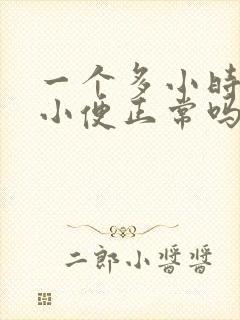 一个多小时
小便正常吗
二郎小酱酱